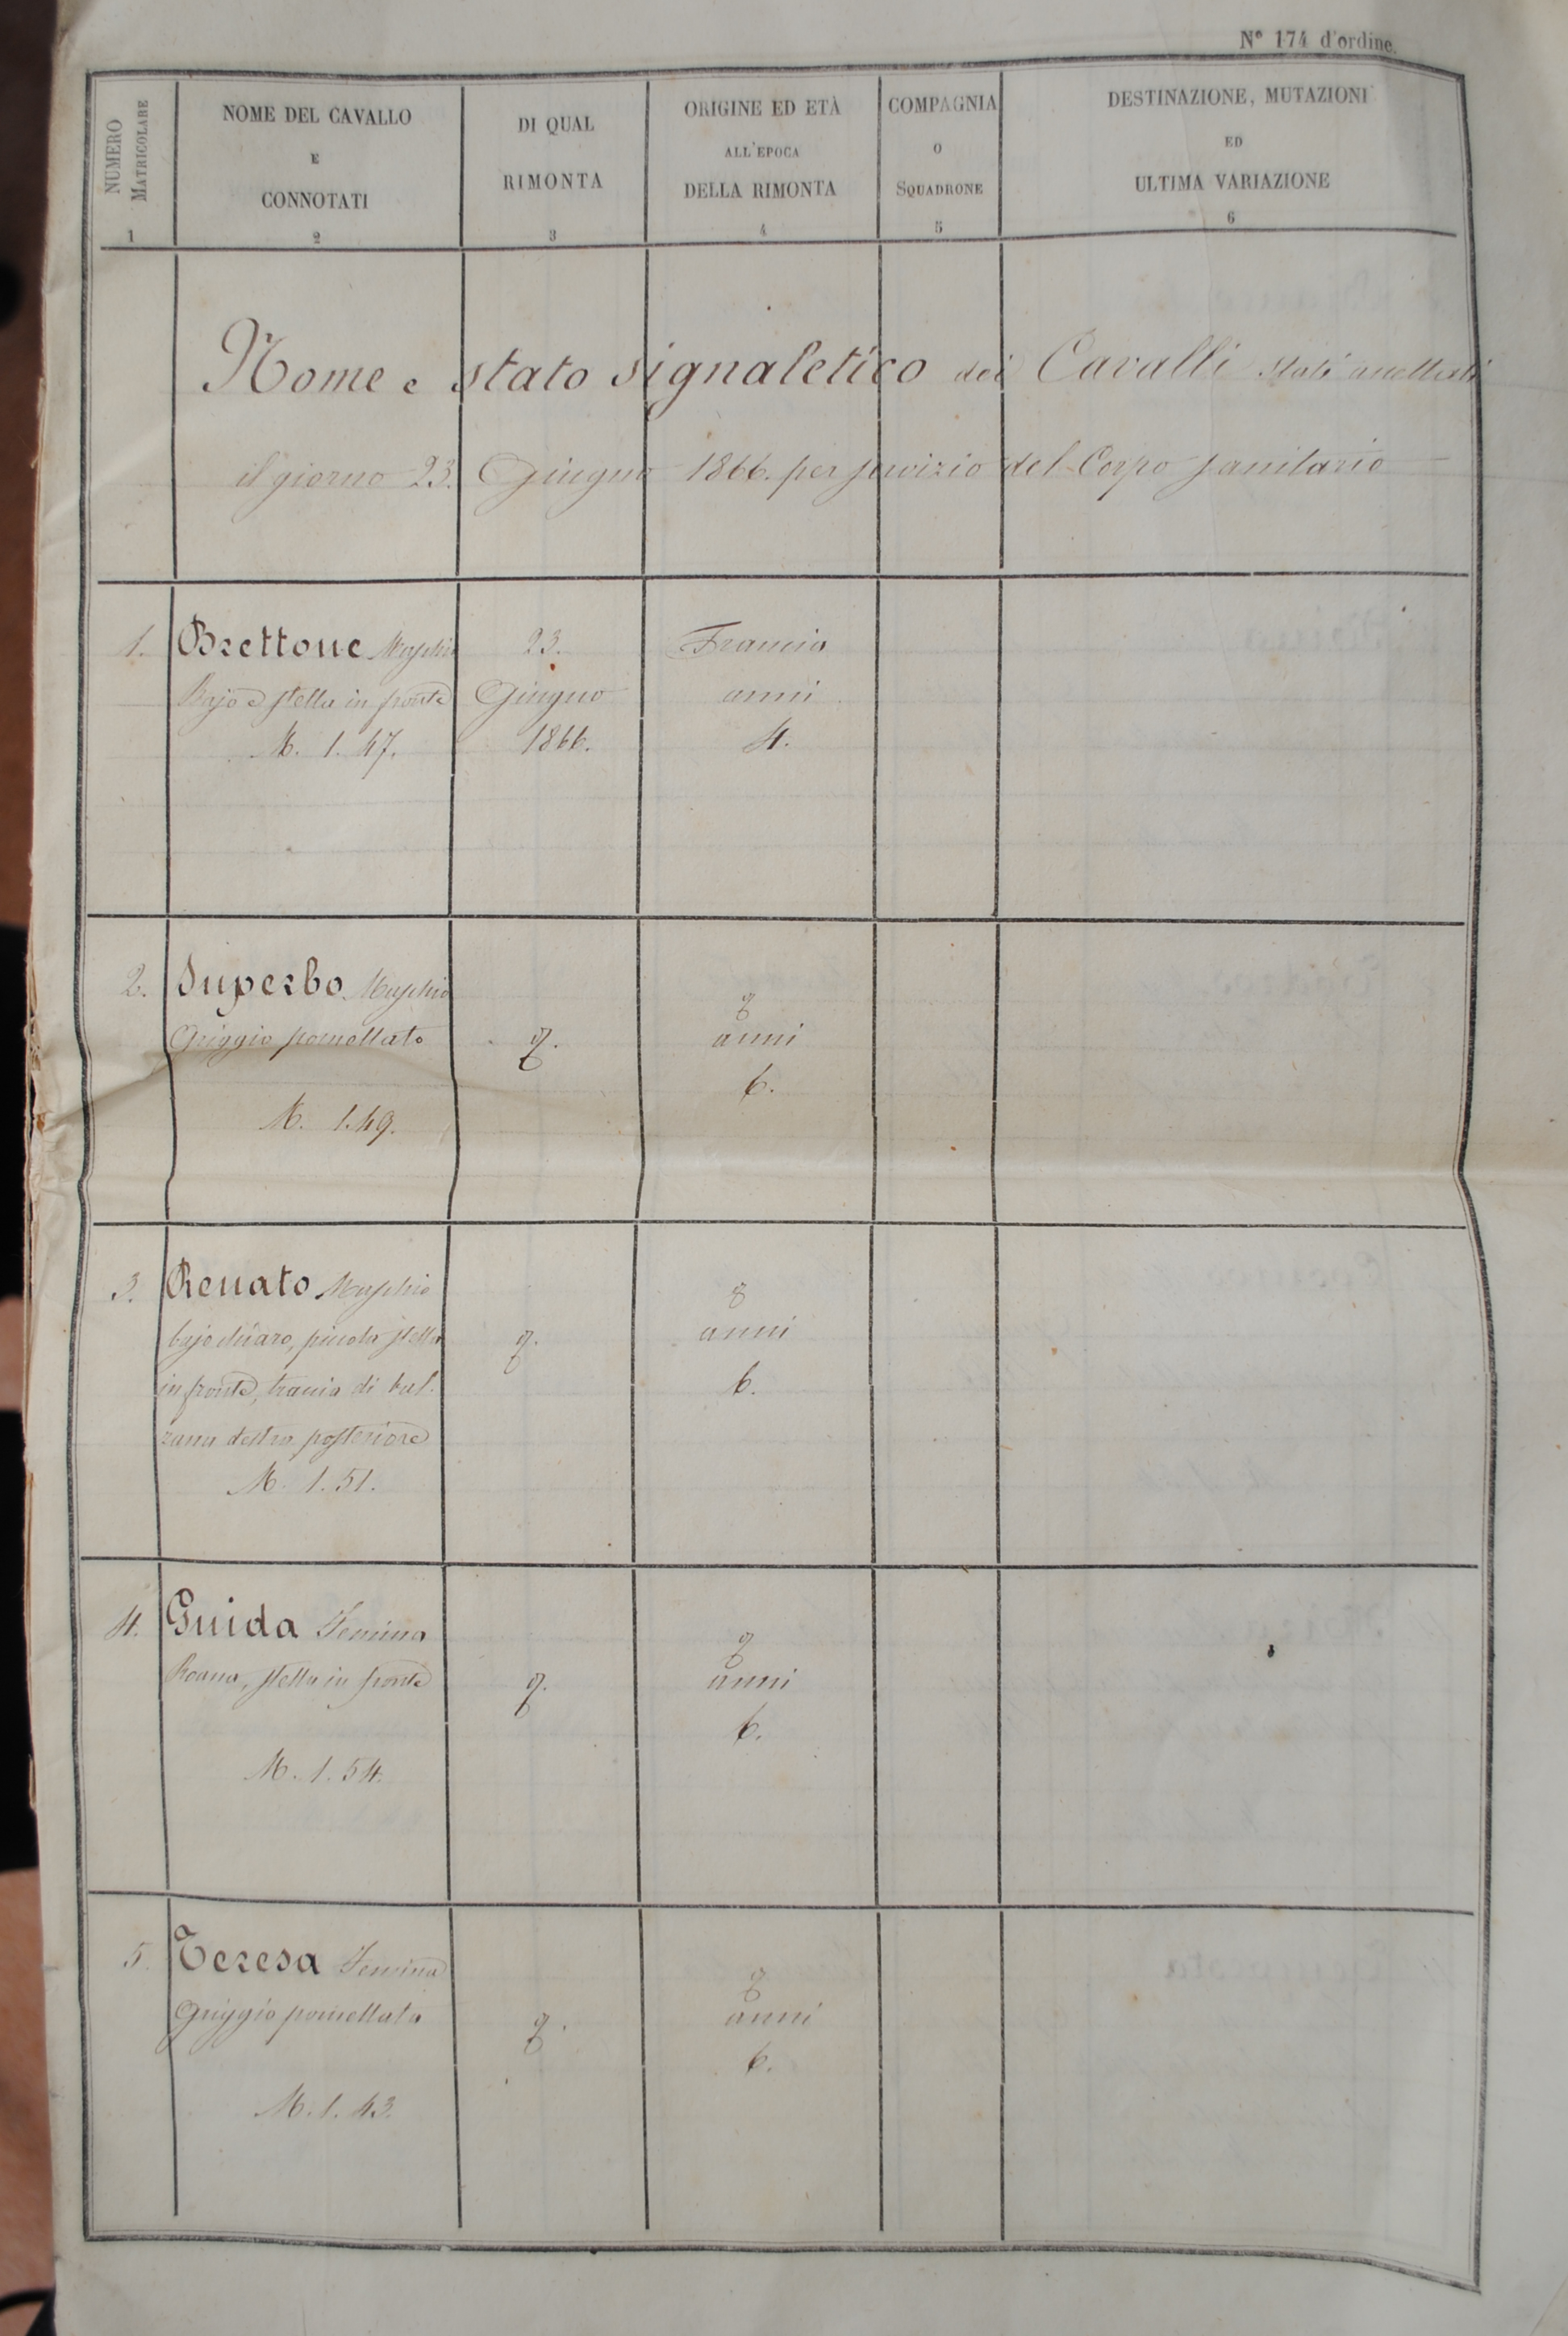 N° 174 d'ordine.
NUMERO
MATRICOLARE
1
NOME DEL CAVALLO
E
CONNOTATI
2
DI QUAL
RIMONTA
3
ORIGINE ED ETÀ
ALL'EPOCA
DELLA RIMONTA
4
COMPAGNIA
O
SQUADRONE
5
DESTINAZIONE, MUTAZIONI
ED
ULTIMA VARIAZIONE
6
Nome e stato signaletico dei Cavalli stati
il giorno 23. Giugno 1866. per servizio del Corpo sanitario
1.
Brettone Maschio
Bajo e stella in fronte
M. 1. 47.
23.
Giugno
1866.
Francia
anni
4.
2.
Superbo Maschio
Griggio pomellato
M. 1.49.
anni
6.
3.
Renato Maschio
bajo chiaro, piccola stella
in fronte, traccia di bal-
zana destra posteriore
M. 1. 51.
anni
6.
4.
Guida Femina
Roana, stella in fronte
M. 1. 54.
anni
6.
5.
Teresa Femina
Griggio pomellata
M. 1. 43.
anni
6.